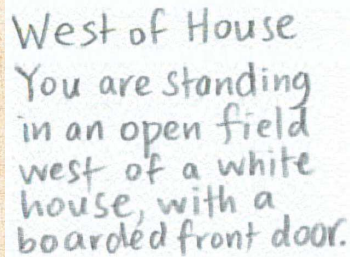 West of House
You are standing
in an open field
west of a white
house, with a
boarded front door.